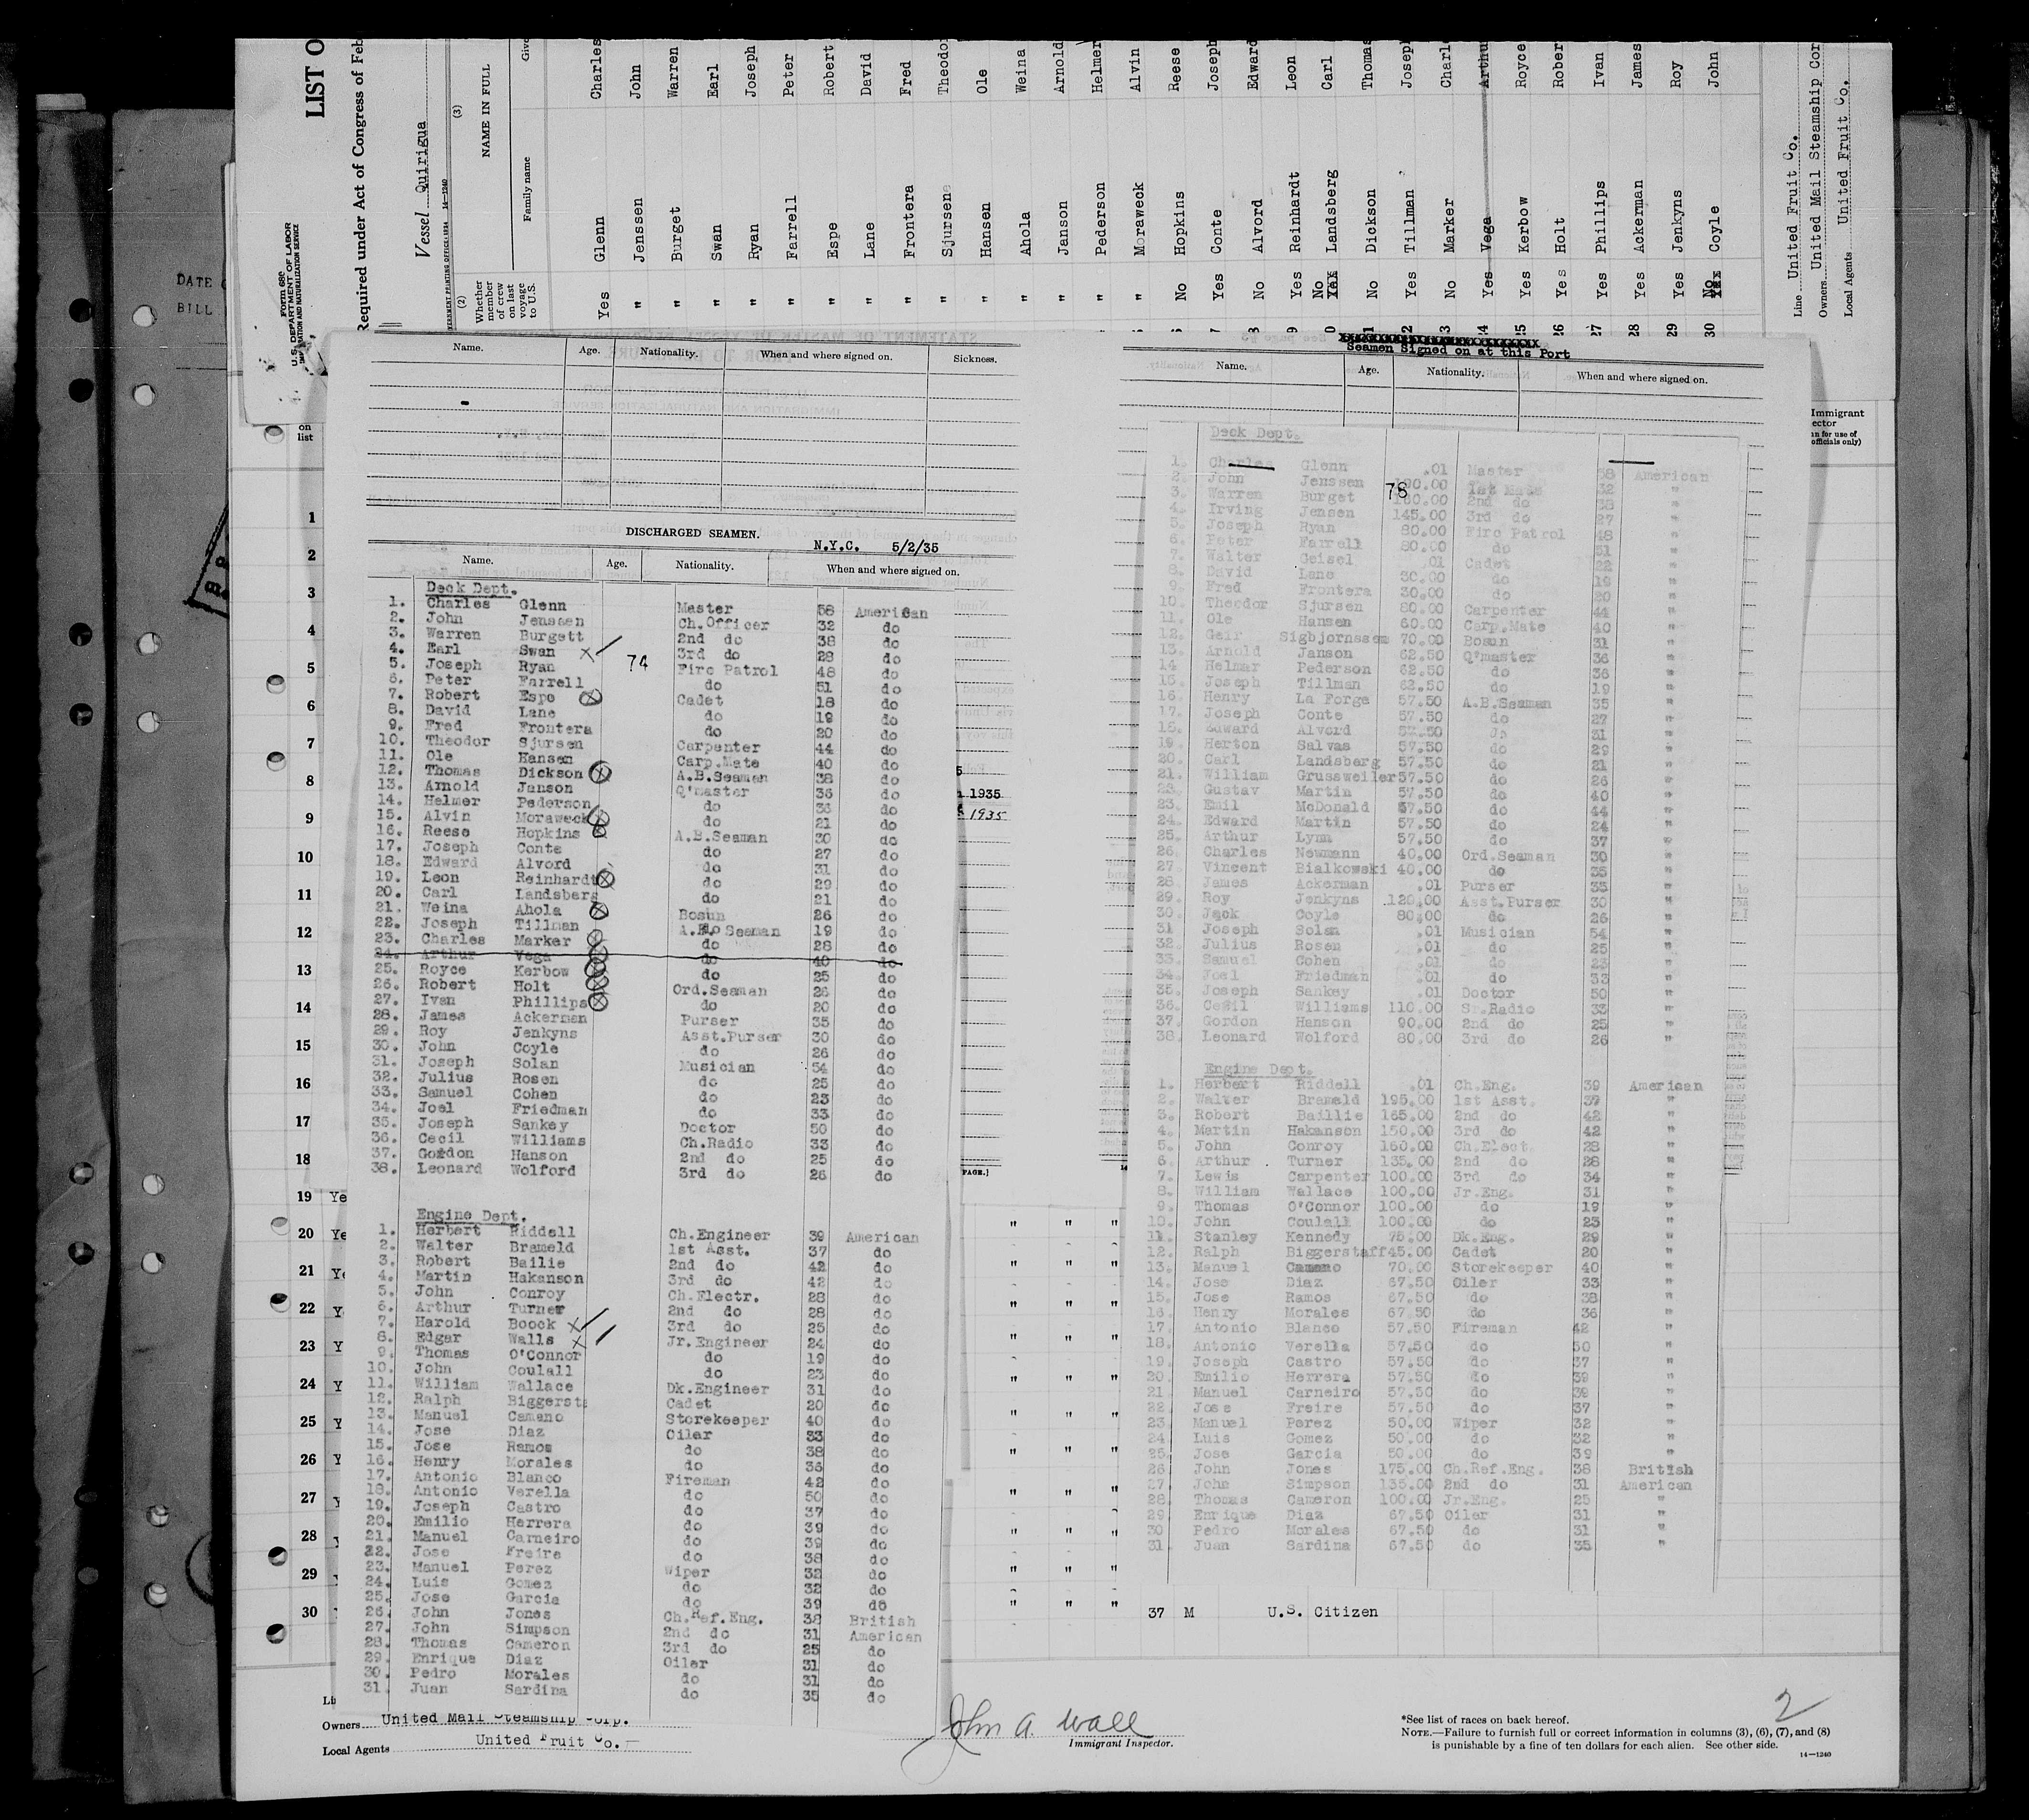 LIST O
Required under Act of Congress of Feb
Form 680
U.S. DEPARTMENT OF LABOR
IMMIGRATION AND NATURALIZATION SERVICE
Vessel Quirigua
(3)
NAME IN FULL
Family name
Give
(2)
Whether member of crew on last voyage to U.S.
Yes Glenn Charles
" Jenssen John
" Burget Warren
" Swan Earl
" Ryan Joseph
" Farrell Peter
" Espe Robert
" Lane David
" Frontera Fred
" Sjursene Theodor
" Hansen Ole
" Ahola Weina
" Janson Arnold
" Pederson Helmer
" Moraweck Alvin
No Hopkins Reese
7 Yes Conte Joseph
8 No Alvord Edward
9 Yes Reinhardt Leon
0 No Landsberg Carl
11 No Dickson Thomas
12 Yes Tillman Joseph
13 No Marker Charl
24 Yes Vega Arthu
25 Yes Kerbow Royce
26 Yes Holt Rober
27 Yes Phillips Ivan
28 Yes Ackerman James
29 Yes Jenkyns Roy
30 No Coyle John
Line United Fruit Co.
Owners United Mail Steamship Cor
Local Agents United Fruit Co.
DATE
BILL
Name. Age. Nationality. When and where signed on. Sickness.
DISCHARGED SEAMEN.
N.Y.C. 5/2/35
Name. Age. Nationality. When and where signed on.
Deck Dept.
1. Charles Glenn Master 58 American
2. John Jenssen Ch.Officer 32 do
3. Warren Burgett 2nd do 38 do
4. Earl Swan 3rd do 28 do
74
5. Joseph Ryan Fire Patrol 48 do
6. Peter Farrell do 51 do
7. Robert Espe Cadet 18 do
8. David Lane do 19 do
9. Fred Frontera do 20 do
10. Theodor Sjursen Carpenter 44 do
11. Ole Hansen Carp.Mate 40 do
12. Thomas Dickson A.B.Seaman 38 do
13. Arnold Janson Q'master 36 do
14. Helmer Pederson do 36 do
15. Alvin Moraweck do 21 do
16. Reese Hopkins A.B.Seaman 30 do
17. Joseph Conte do 27 do
18. Edward Alvord do 31 do
19. Leon Reinhardt do 29 do
20. Carl Landsberg do 21 do
21. Weina Ahola Bosun 26 do
22. Joseph Tillman A.B. Seaman 19 do
23. Charles Marker do 28 do
24. Arthur Vega do 40 do
25. Royce Kerbow do 25 do
26. Robert Holt Ord.Seaman 26 do
27. Ivan Phillips do 20 do
28. James Ackerman Purser 35 do
29. Roy Jenkyns Asst.Purser 30 do
30. John Coyle do 26 do
31. Joseph Solan Musician 54 do
32. Julius Rosen do 25 do
33. Samuel Cohen do 23 do
34. Joel Friedman do 33 do
35. Joseph Sankey Doctor 50 do
36. Cecil Williams Ch.Radio 33 do
37. Gordon Hanson 2nd do 25 do
38. Leonard Wolford 3rd do 26 do
Engine Dept.
1. Herbert Riddell Ch.Engineer 39 American
2. Walter Brameld 1st Asst. 37 do
3. Robert Bailie 2nd do 42 do
4. Martin Hakanson 3rd do 42 do
5. John Conroy Ch.Electr. 28 do
6. Arthur Turner 2nd do 28 do
7. Harold Boock 3rd do 25 do
8. Edgar Walls Jr.Engineer 24 do
9. Thomas O'Connor do 19 do
10. John Coulall do 23 do
11. William Wallace Dk.Engineer 31 do
12. Ralph Biggersta Cadet 20 do
13. Manuel Camano Storekeeper 40 do
14. Jose Diaz Oiler 33 do
15. Jose Ramos do 38 do
16. Henry Morales do 36 do
17. Antonio Blanco Fireman 42 do
18. Antonio Verella do 50 do
19. Joseph Castro do 37 do
20. Emilio Herrera do 39 do
21. Manuel Carneiro do 39 do
22. Jose Freire do 38 do
23. Manuel Perez Wiper 32 do
24. Luis Gomez do 32 do
25. Jose Garcia do 39 do
26. John Jones Ch.Ref.Eng. 38 British
27. John Simpson 2nd do 31 American
28. Thomas Cameron 3rd do 25 do
29. Enrique Diaz Oiler 31 do
30. Pedro Morales do 31 do
31. Juan Sardina do 35 do
Seamen Signed on at this Port
Name. Age. Nationality. When and where signed on.
Deck Dept.
1. Charles Glenn .01 Master 58 American
2. John Jenssen 190.00 1st Mate 32 "
78
3. Warren Burget 160.00 2nd do 38 "
4. Irving Jensen 145.00 3rd do 27 "
5. Joseph Ryan 80.00 Fire Patrol 48 "
6. Peter Farrell 80.00 do 51 "
7. Walter Geisel .01 Cadet 22 "
8. David Lane 30.00 do 19 "
9. Fred Frontera 30.00 do 20 "
10. Theodor Sjursen 80.00 Carpenter 44 "
11. Ole Hansen 60.00 Carp.Mate 40 "
12. Geir Sigbjornssen 70.00 Bosun 31 "
13. Arnold Janson 62.50 Q'master 36 "
14 Helmar Pederson 62.50 do 36 "
15. Joseph Tillman 62.50 do 19 "
16. Henry La Forge 57.50 A.B.Seaman 35 "
17. Joseph Conte 57.50 do 27 "
18. Edward Alvord 57.50 do 31 "
19. Herton Salvas 57.50 do 29 "
20. Carl Landsberg 57.50 do 21 "
21. William Grussweiler 57.50 do 26 "
22. Gustav Martin 57.50 do 40 "
23. Emil McDonald 57.50 do 44 "
24. Edward Martin 57.50 do 24 "
25. Arthur Lynn 57.50 do 37 "
26. Charles Neumann 40.00 Ord.Seaman 30 "
27. Vincent Bialkowski 40.00 do 35 "
28. James Ackerman .01 Purser 35 "
29. Roy Jenkyns 120.00 Asst.Purser 30 "
30. Jack Coyle 80.00 do 26 "
31 Joseph Solan .01 Musician 54 "
32. Julius Rosen .01 do 25 "
33. Samuel Cohen .01 do 23 "
34. Joel Friedman .01 do 33 "
35. Joseph Sankey .01 Doctor 50 "
36. Cecil Williams 110.00 Sr.Radio 33 "
37. Gordon Hanson 90.00 2nd do 25 "
38. Leonard Wolford 80.00 3rd do 26 "
Engine Dept.
1. Herbert Riddell .01 Ch.Eng. 39 American
2. Walter Brameld 195.00 1st Asst. 37 "
3. Robert Baillie 165.00 2nd do 42 "
4. Martin Hakanson 150.00 3rd do 42 "
5. John Conroy 160.00 Ch.Elect. 28 "
6. Arthur Turner 135.00 2nd do 28 "
7. Lewis Carpenter 100.00 3rd do 34 "
8. William Wallace 100.00 Jr.Eng. 31 "
9. Thomas O'Connor 100.00 do 19 "
10. John Coulall 100.00 do 23 "
11. Stanley Kennedy 75.00 Dk.Eng. 29 "
12. Ralph Biggerstaff 45.00 Cadet 20 "
13. Manuel Camano 70.00 Storekeeper 40 "
14. Jose Diaz 67.50 Oiler 33 "
15. Jose Ramos 67.50 do 38 "
16. Henry Morales 67.50 do 36 "
17. Antonio Blanco 57.50 Fireman 42 "
18. Antonio Verella 57.50 do 50 "
19. Joseph Castro 57.50 do 37 "
20. Emilio Herrera 57.50 do 39 "
21 Manuel Carneiro 57.50 do 39 "
22 Jose Freire 57.50 do 37 "
23. Manuel Perez 50.00 Wiper 32 "
24 Luis Gomez 50.00 do 32 "
25. Jose Garcia 50.00 do 39 "
26 John Jones 175.00 Ch.Ref.Eng. 38 British
27. John Simpson 135.00 2nd do 31 American
28. Thomas Cameron 100.00 Jr.Eng. 25 "
29 Enrique Diaz 67.50 Oiler 31 "
30 Pedro Morales 67.50 do 31 "
31. Juan Sardina 67.50 do 35 "
1935
1935
PAGE.]
on
list
1
2
3
4
5
6
7
8
9
10
11
12
13
14
15
16
17
18
19 Ye
20 Ye
21 Ye
22 Y
23 Y
24 Y
25 Y
26 Y
27 Y
28
29
30
Immigrant
ector
n for use of
officials only)
37 M U.S. Citizen
Li
Owners United Mail Steamship Corp.
Local Agents United Fruit Co.
John A. Wall
Immigrant Inspector.
2
*See list of races on back hereof.
NOTE.—Failure to furnish full or correct information in columns (3), (6), (7), and (8)
is punishable by a fine of ten dollars for each alien. See other side.
14—1240